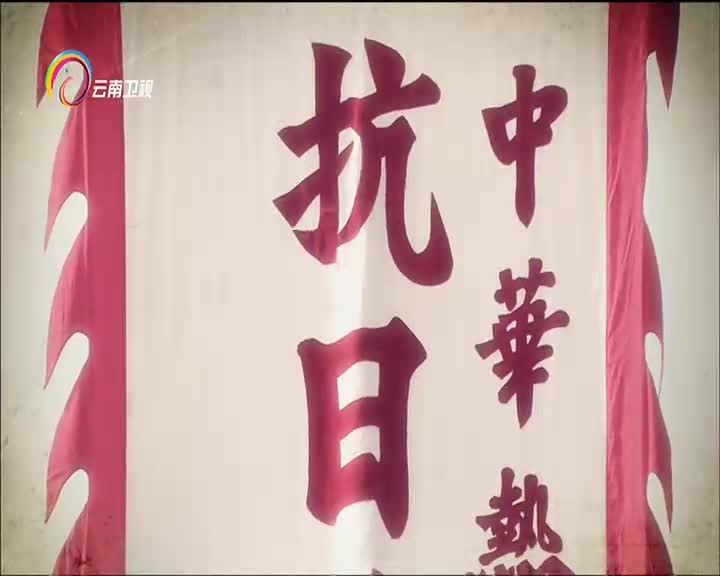 云南卫视
中華熱
抗日